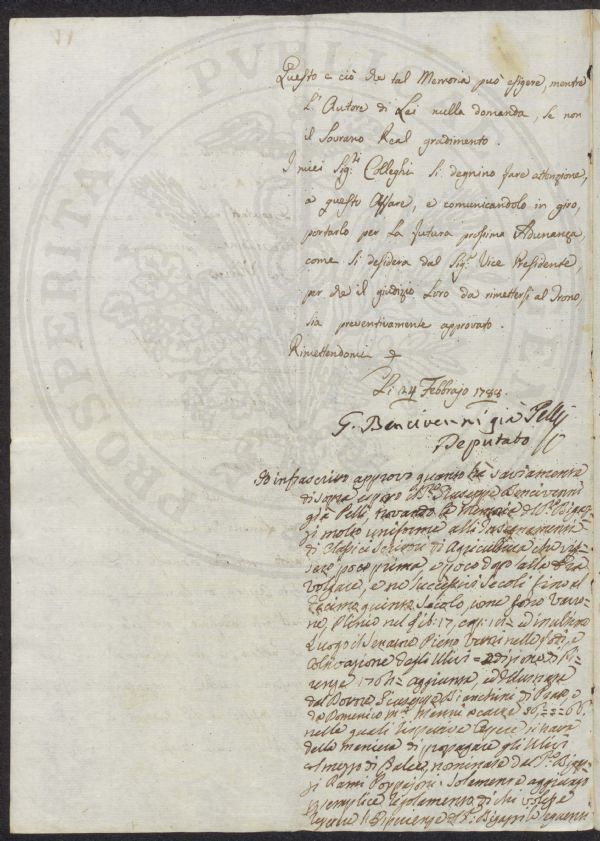 Questo e ciò che tal Memoria può esigere, mentre
L'Autore di Lei nulla domanda, se non
il Sovrano Real gradimento.
I miei Sig.ri Colleghi si degnino fare attenzione,
a questo Affare, e comunicandolo in giro,
portarlo per la futura prossima Adunanza,
come si desidera dal Sig.r Vice Presidente,
per che il giudizio loro da rimettersi al Trono,
sia preventivamente approvato.
Rimettendomi
Li 24 Febbrajo 1788.
G. Bencivenni già Pelli
Deputato
Io infrascritto approvo quanto ha saviamente
di sopra esposto il Sig.re Giuseppe Bencivenni
già Pelli, trovando la Memoria del
molto uniforme alli Insegnamenti
di Classici Scrittori di Agricultura che
sero poco prima, e poco dopo alla
volgare, e ne successivi secoli fino al
Decimo quinto secolo, come sono Varro-
ne, Plinio nel Lib: 17, cap:
Luogo il Senatore Piero Vettori nelle lodi e
coltivazione degli Ulivi = edizione di Fi-
renze 176 = aggiunta ed illustrata
dal Dottor Giuseppe Bianchini di Prato, e
da Domenico M.a Manni a carte
nelle quali
della maniera di propagare gli Ulivi
col mezzo di nominate dal Sig.
Solamente aggiunge
semplice regolamento di chi volesse